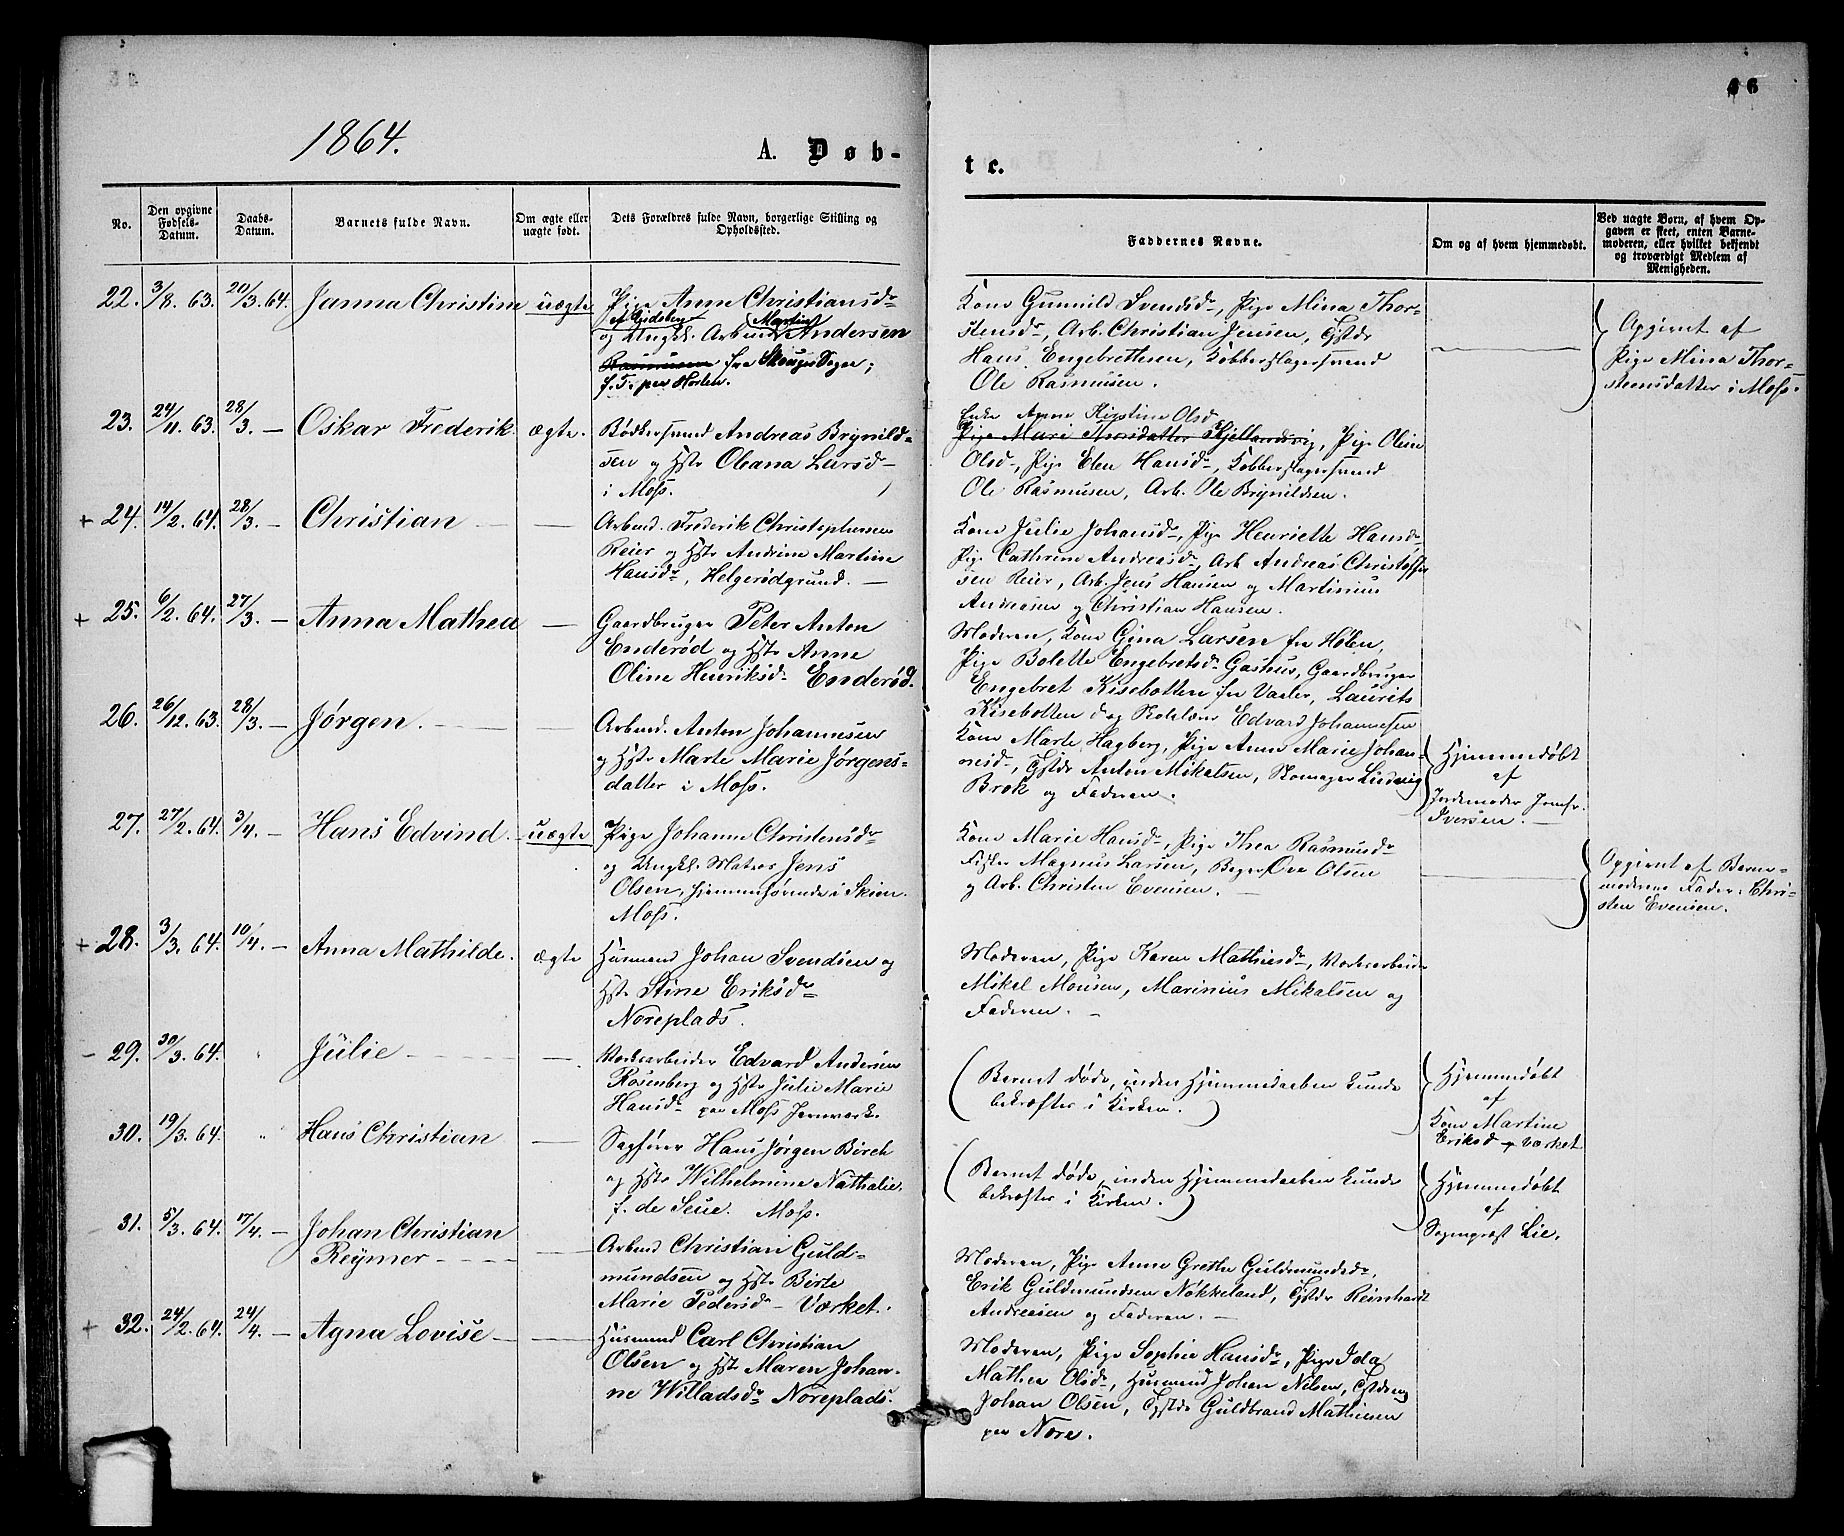 46
1864.
A. Døb-
te.
No.
Den opgivne Fødsels-Datum.
Daabs-Datum.
Barnets fulde Navn.
Om ægte eller uægte født.
Dets Forældres fulde Navn, borgerlige Stilling og Opholdssted.
Faddernes Navne.
Om og af hvem hjemmedøbt.
Ved uægte Børn, af hvem Opgaven er skeet, enten Barnemoderen, eller hvilket bekjendt og troværdigt Medlem af Menigheden.
22. 3/8. 63. 20/3. 64. Janna Christine uægte
Pige Anne Christiansdr
og Ungkl. Arbmd Martin Andersen
Rasmussen fra Skouger Sogn;
f. T. paa Horten.
Kone Gunnild Svendsdr, Pige Mina Thor-
stensdr, Arb. Christian Jensen, Tjstdr
Hans Engebrethsen, Kobberslagersvend
Ole Rasmusen.
Opgivet af
Pige Mina Thor-
steensdatter i Moss.
23. 24/11. 63. 28/3. — Oskar Frederik. ægte.
Bødkersvend Andreas Brynild-
sen og Hstr Oleana Larsdr
i Moss.
Enke Anne Kirstine Olsd
Pige Mari Thorsdatter Kjellandsvig, Pige Oline
Olsdr, Pige Elen Hansdr, Kobberslagersvend
Ole Rasmusen, Arb. Ole Brynildsen.
+ 24. 14/2. 64. 28/3. — Christian —
Arbmd. Frederik Christophersen
Reier og Hstr Andrine Martine
Hansdr, Helgerødgrund. —
Kone Julie Johansdr, Pige Henriette Hansdr
Pige Cathrine Andreasdr, Arb Andreas Christoffer
sen Reier, Arb. Jens Hansen og Martinius
Andreasen og Christian Hansen.
+ 25. 6/2. 64. 27/3. — Anna Mathea —
Gaardbruger Peter Anton
Enderød og Hstr Anne
Oline Henriksdr Enderød.
Moderen, Kone Gina Larsen fra Hølen,
Pige Bolette Engebretsdr Gashus, Gaardbruger
Engebret Kisebotten fra Vaaler, Laurits
Kisebotten og Skolelærer Edvard Johannesen
26. 26/12. 63. 28/3. — Jørgen. —
Arbmd. Anton Johannesen
og Hstr Marte Marie Jørgens-
datter i Moss.
Kone Marte Hagberg, Pige Anne Marie Johan-
nesdr, Tjstdr Anton Mikelsen, Skomager Ludvig
Brok og Faderen.
Hjemmedøbt
af
Jordemoder Jomfr.
Iversen. —
27. 27/2. 64. 3/4. — Hans Edvind. — uægte
Pige Johanne Christensdr
og Ungkl. Matros Jens
Olsen, hjemmehørende i Skien.
Moss.
Kone Marie Hansdr, Pige Thea Rasmusdr
Fisker Magnus Larsen, Bager Ove Olsen
og Arb. Christen Evensen. —
Opgivet af Barne-
moderens Fader: Chri-
sten Evensen.
+ 28. 3/3. 64. 10/4. — Anna Mathilde. ægte
Husmand Johan Svendsen og
Hstr Stine Eriksdr
Noreplads.
Moderen, Pige Karen Mathiesdr, Værksarbeider
Mikel Monsen, Marinius Mikalsen og
Faderen. —
— 29. 30/3. 64. " Julie —
Værksarbeider Edvard Andersen
Rosenberg og Hstr Julie Marie
Hansdr paa Moss Jernværk.
(Barnet døde, inden Hjemmedaaben kunde
bekræftes i Kirken.)
Hjemmedøbt
af
Kone Martine
Eriksd Værket
30. 19/3. 64. " Hans Christian —
Sagfører Hans Jørgen Birch
og Hstr Wilhelmine Nathalie
f. de Seue. Moss.
(Barnet døde, inden Hjemmedaaben kunde
bekræftes i Kirken.)
Hjemmedøbt
af
Sogneprest Lie.
31. 5/3. 64. 17/4. — Johan Christian
Reymer —
Arbmd Christian Guld-
mundsen og Hstr Birte
Marie Pedersdr — Værket.
Moderen, Pige Anne Grethe Guldmundsdr,
Erik Guldmundsen Nøkkeland, Tjstdr Reinhardt
Andreasen og Faderen. —
+ 32. 24/2. 64. 24/4. — Agna Lovise —
Husmand Carl Christian
Olsen og Hstr Maren Johan-
ne Willadsdr Noreplads.
Moderen, Pige Sophie Hansdr, Pige Ida
Mathea Olsdr, Husmand Johan Nilsen, Tjstdreng
Johan Olsen, Tjstdr Guldbrand Mathiesen
paa Nore.